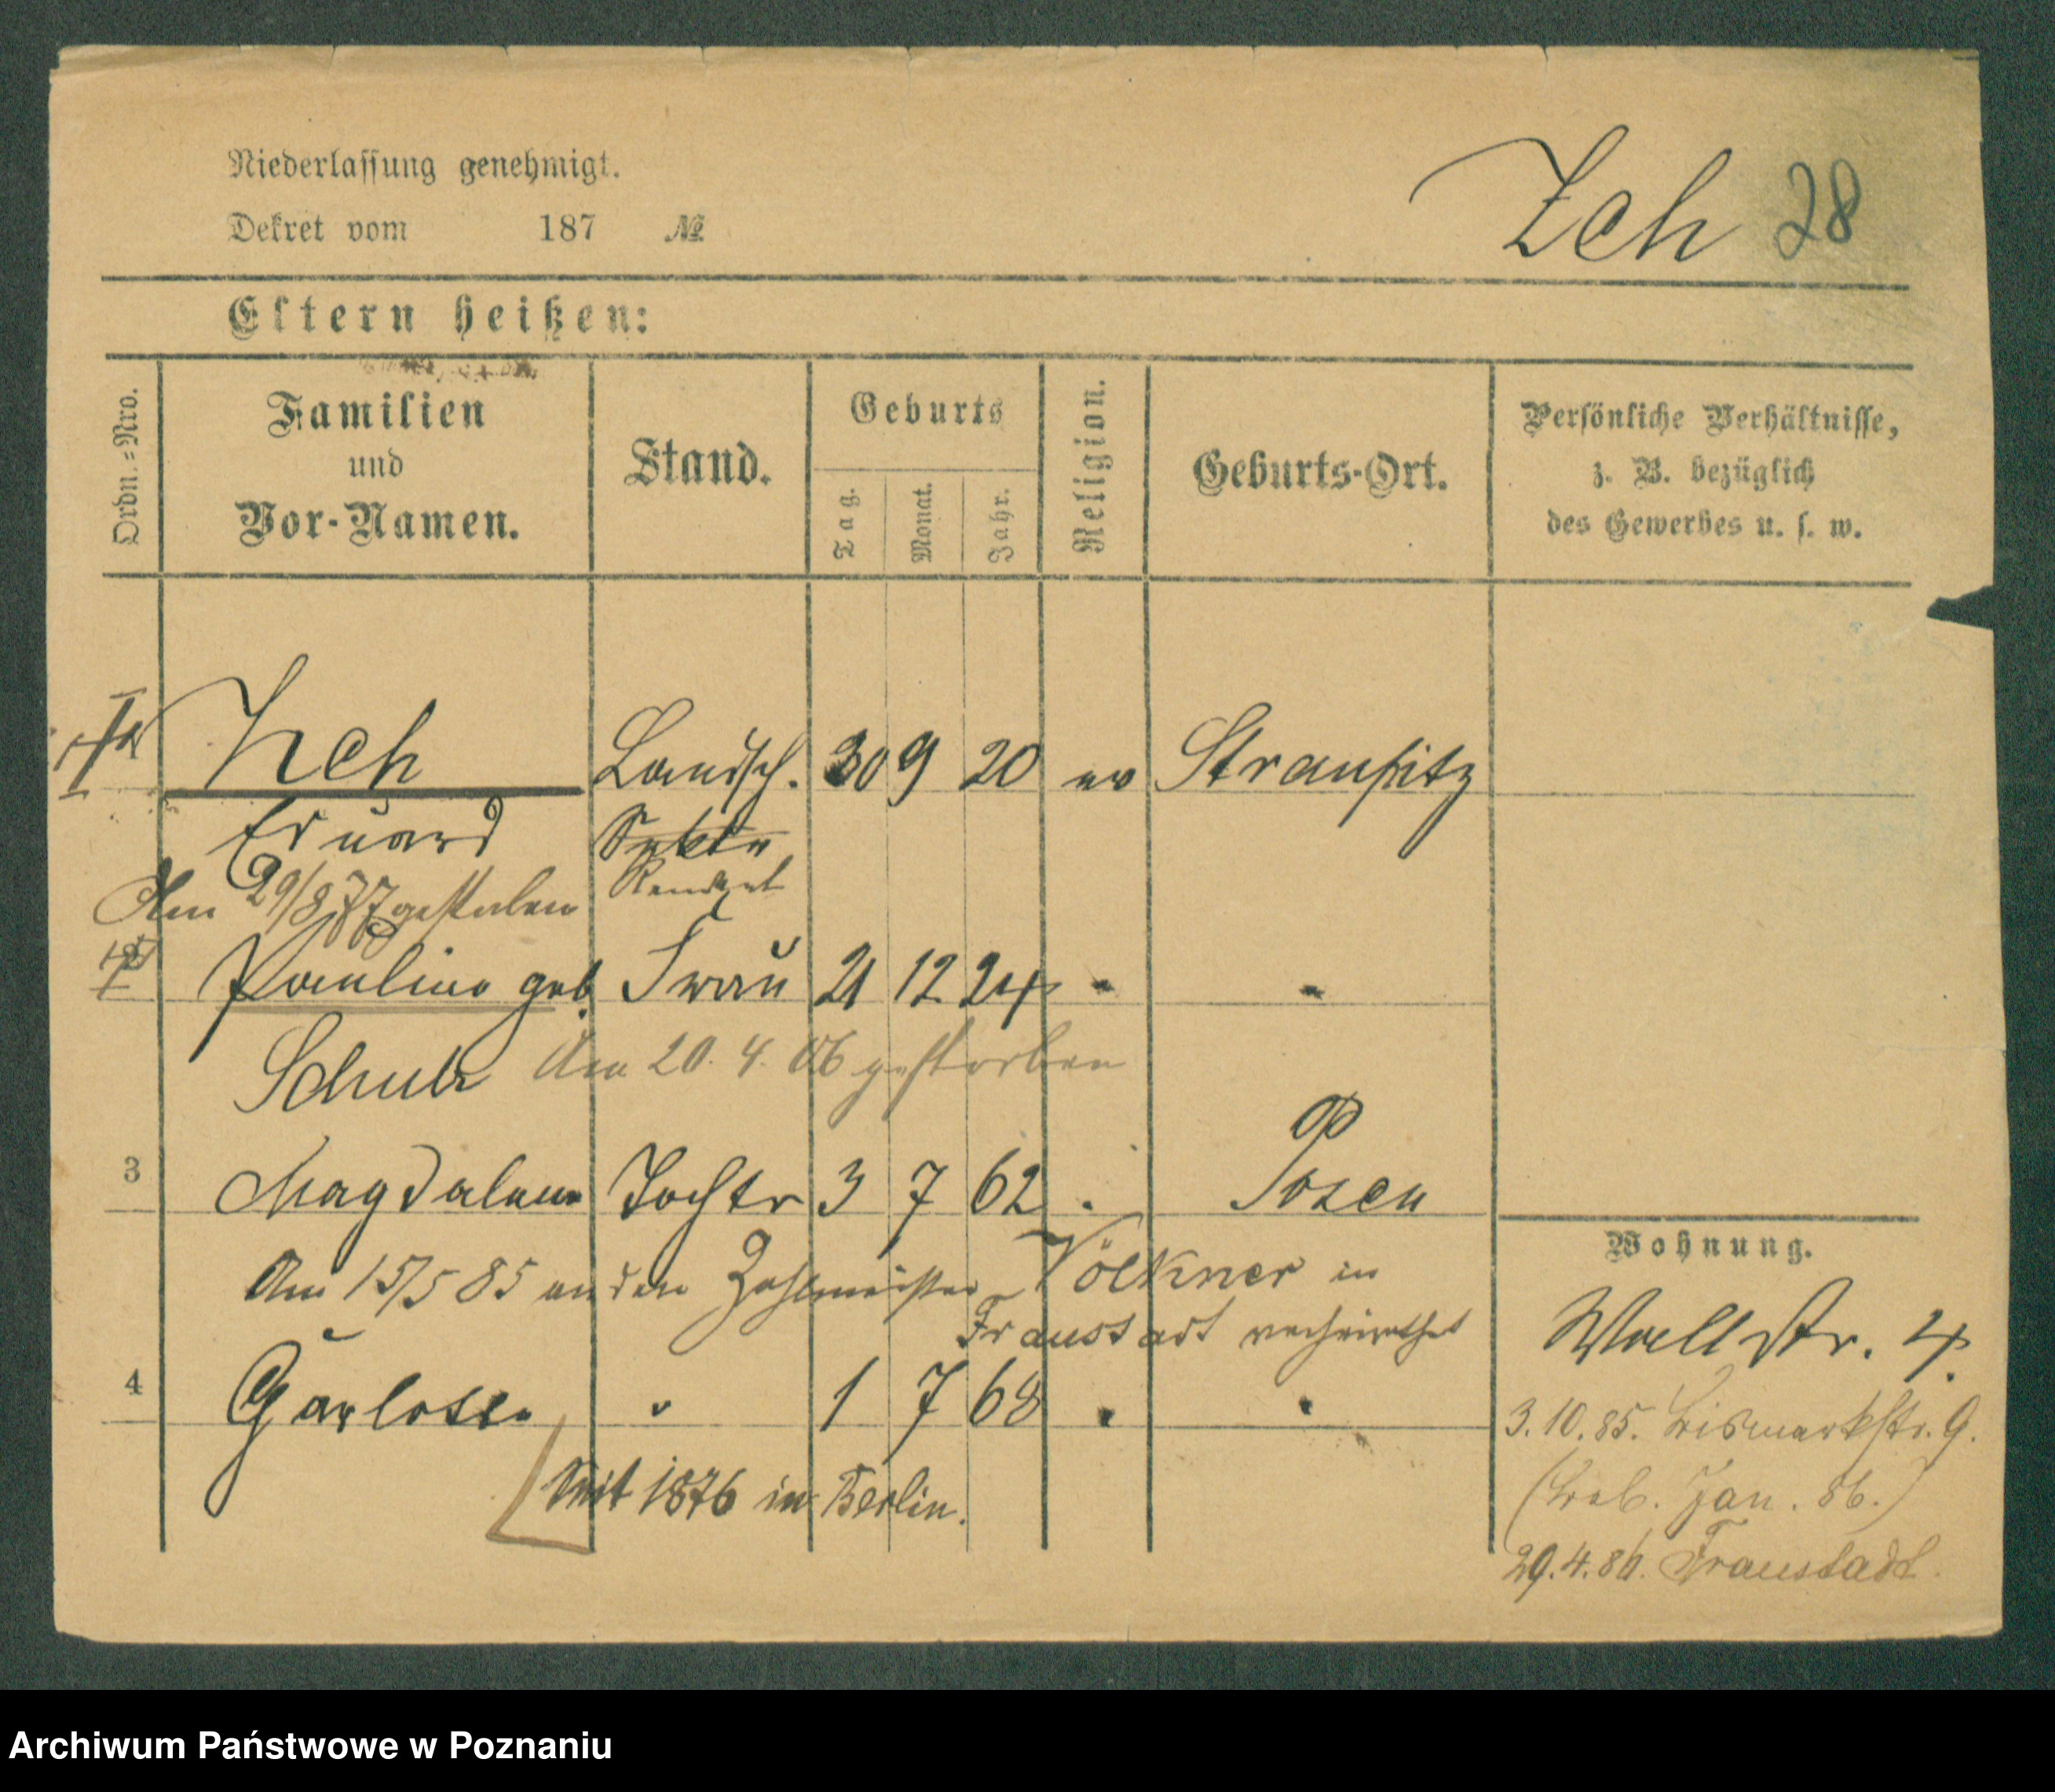 Niederlassung genehmigt.
Dekret vom 187 №
Zch 28
Eltern heißen:
Ordn.=Nro.
Familien
und
Vor-Namen.
Stand.
Geburts
Tag.
Monat.
Jahr.
Religion.
Geburts-Ort.
Persönliche Verhältnisse,
z. B. bezüglich
des Gewerbes u. s. w.
Zch Landsch. 30 9 20 ev
Eduard
Rendant
Am 29/8 77 gestorben
Pauline geb. Frau 21 12 24 "
Schulz Am 20. 4. 86 gestorben
3 Magdalene Tochter 3 7 62 " Posen
Am 15/5 85 an den Zahlmeister Völkner in
Fraustadt verheirathet
4 " 1 7 68 " "
Seit 1876 in Berlin.
Wohnung.
Wallstr. 4.
3.10.85. Bismarkstr. 9.
Jan. 86.)
29.4.86. Fraustadt.
Archiwum Państwowe w Poznaniu